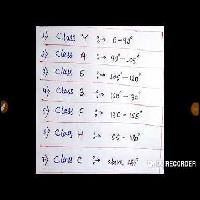 1) Class Y :→ 0-90°
2) Class A :→ 90°-105°
3) Class E :→ 105°-120°
4) Class B :→
5) Class F :→ 130-155°
6) Class H :→ 155-180°
7) Class C :→ above 180°
RECORDER